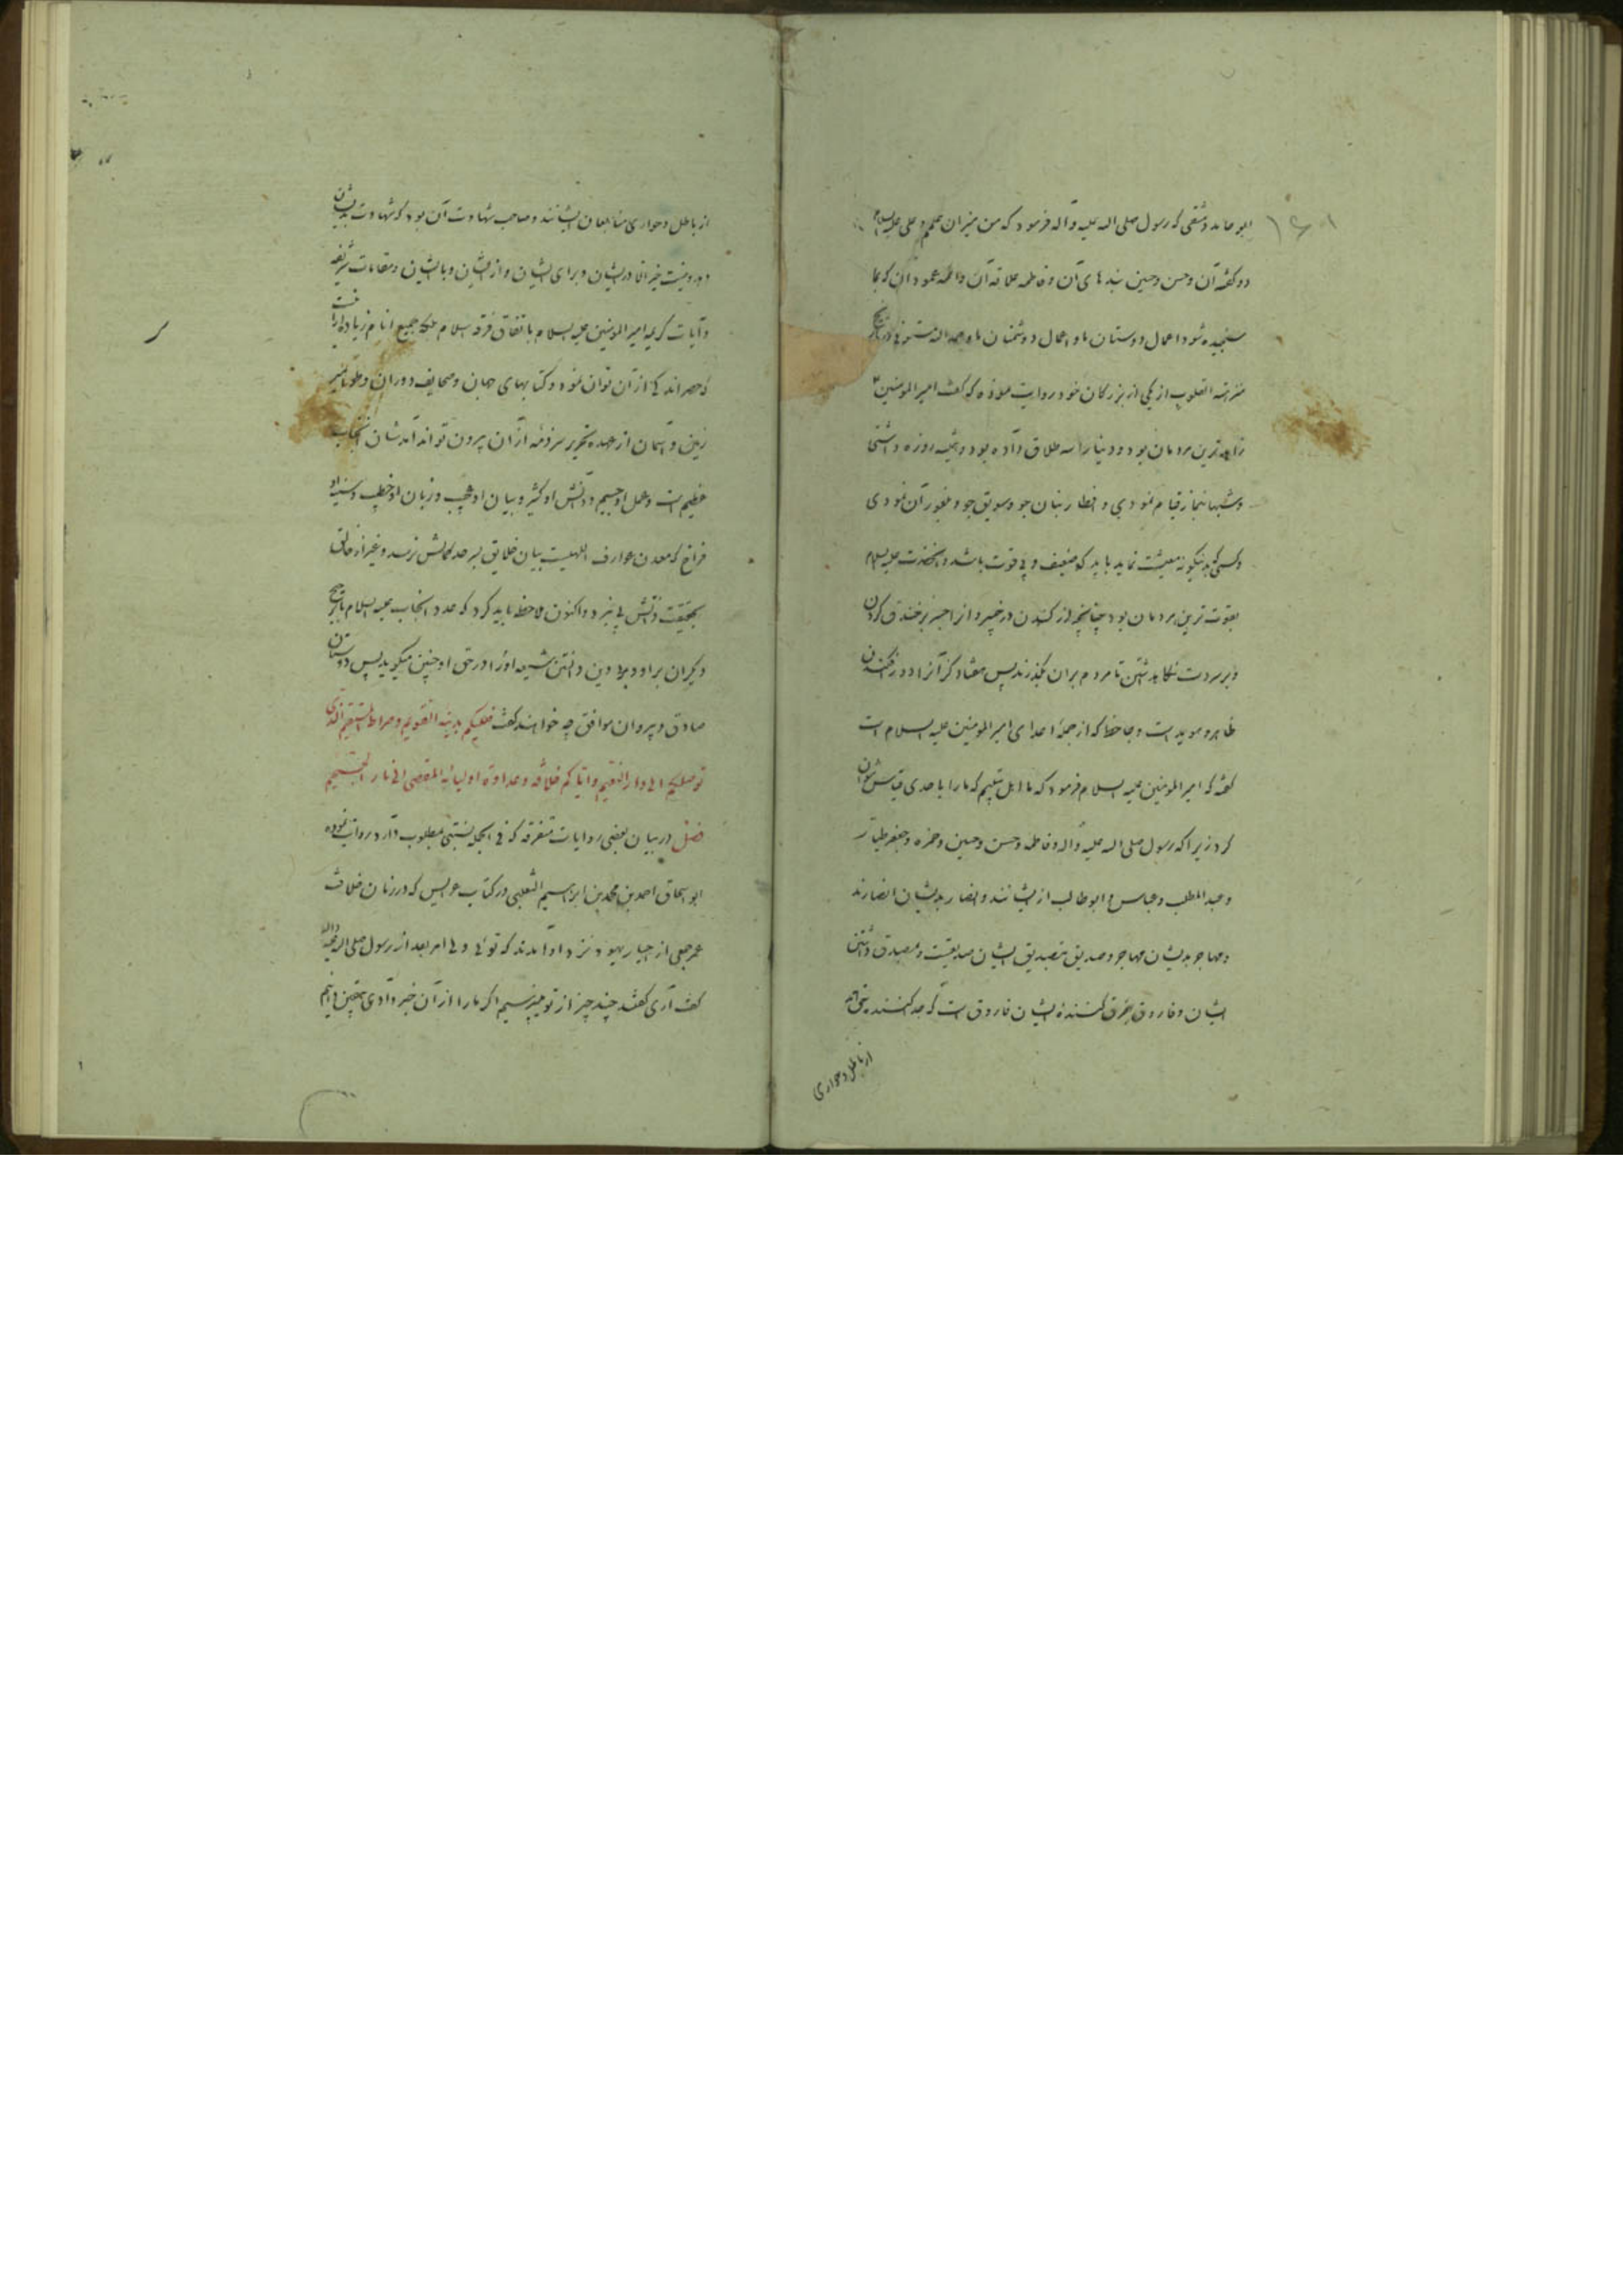 ابو حامد دمشقی که رسول صلی الله علیه و آله فرمود که من میزان علمم و علی علیه السلام
دو کفه آن و حسن و حسین بندهای آن و فاطمه علاقه آن و ائمه عمود آن که بما
سنجیده شود اعمال دوستان ما و اعمال دشمنان ما و
نزهة القلوب از یکی از بزرکان خود روایت نموده که کفت امیر المومنین
زاهدترین مردمان بود و دنیا را سه طلاق داده بود و همیشه روزه داشتی
و شبها بنماز قیام نمودی و افطار بنان جو و سویق جو
و کسی که بدینکونه معیشت نماید باید که ضعیف و بی قوت باشد و آنحضرت علیه السلام
بقوت ترین مردمان بود چنانچه از کندن در خیبر و از جسر بر خندق کردن
و بر سر دست نکاه داشتن تا مردم بر آن بگذرند پس هفتاد کز آنرا دور افکندن
ظاهر و هویداست و جاحظ که از جملهٔ اعدای امیر المومنین علیه السلام است
کفته که امیر المومنین علیه السلام فرمود که ما اهل بیتیم که ما را با احدی قیاس نتوان
کرد زیرا که رسول صلی الله علیه و آله و فاطمه و حسن و حسین و حمزه و جعفر طیار
و عبد المطلب و عباس و ابو طالب از ایشانند و انصار بدیشان انصارند
و مهاجر بدیشان مهاجر و صدیق بتصدیق ایشان صدیقست و مصدق داشتن
ایشان و فاروق بفرق کنندهٔ ایشان فاروق است که جدا کنند
از باطل و حواری
از باطل و حواری متابعان ایشانند و صاحب شهادت آن بود که شهادت بدیشان
دهد و نیست خیر الا در ایشان و برای ایشان و از ایشان و با ایشان و مقامات شریفه
و آیات کریمه امیر المومنین علیه السلام باتفاق فرقه اسلام بلکه جمیع انام زیاده از آنست
که حصر اندکی از آن توان نمود و کتابهای جهان و صحایف دوران و طومار
زمین و آسمان از عهده تحریر از آن بیرون تواند آمد شان آنجناب
عظیم است و عمل او جسیم و دانش او کثیر و بیان او عجیب و زبان او خطیب و سینه او
فراخ که معدن عوارف الهیست بیان خلایق بسر حد کمالش نرسد و غیر از خالق
بحقیقت ذاتش پی نبرد و اکنون ملاحظه باید کرد که عدو آنجناب علیه السلام با ترجیح
دیکران بر او در حق او چنین میکوید پس دوستان
صادق و پیروان موافق چه خواهند کفت فعلیکم بدینه القویم و صراط المستقیم الذی
توصلکم الی دار النعیم و ایاکم خلافه و عداوة اولیائه المفضی الی نار الجحیم
فصل در بیان بعضی روایات متفرقه که فی الجمله نسبتی بمطلوب دارد روایت نموده
ابو اسحاق احمد بن محمد بن ابراهیم الثعلبی در کتاب عرایس که در زمان خلافت
عمر جمعی از احبار یهود نزد او آمدند که توئی ولی امر بعد از رسول صلی الله علیه و آله
کفت آری کفتند چند چیز از تو میپرسیم اگر ما را از آن خبر دادی یقین دانیم